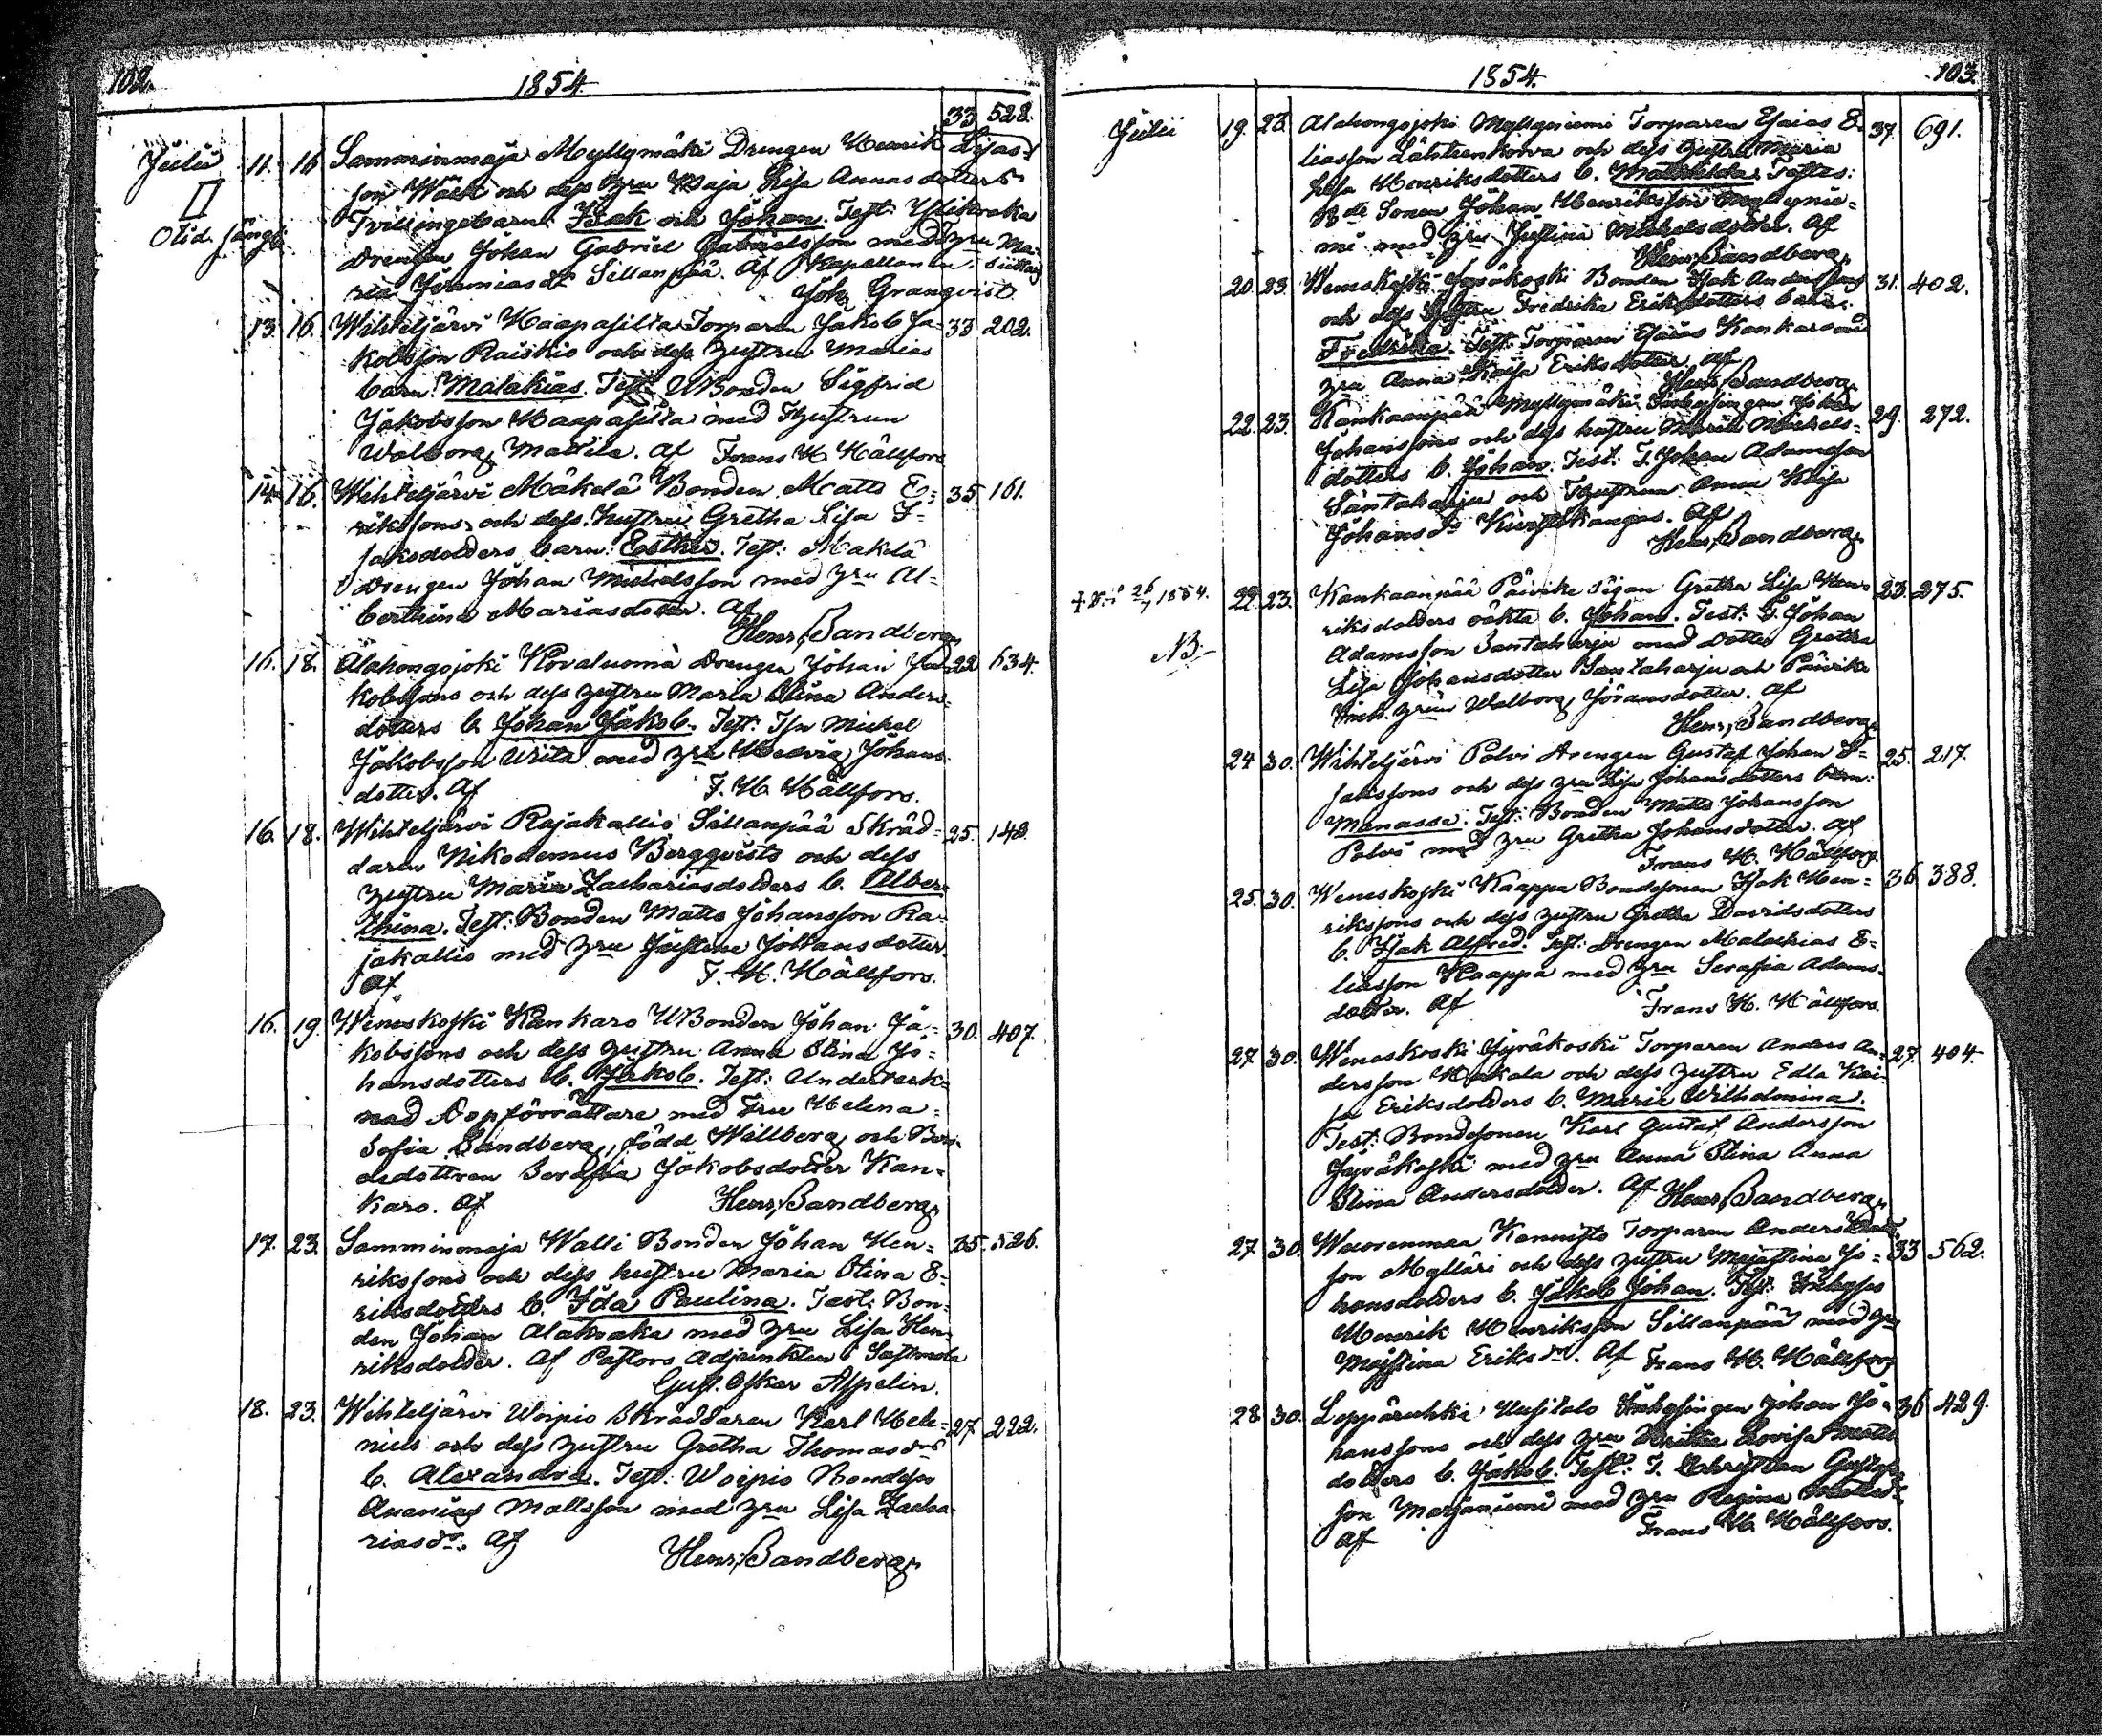 102.
1854
33 528.
Julii 11. 16 Samminmaja Myllymäki Drengen Henrik Lisas-
son Wälli och dess hru Maja Lisa Annasdotters
Tvillingebarn: Isak och Johan. Test: Ylikraka
Otid. sängl.
Drengen Johan Gabriel Gabrielsson med hru Ma-
ria Jeremiasdr Sillanpää. Af Kapellanen i
Joh. Granqvist
13. 16. Wihteljärvi Haapasilta Torparen Jakob Ja- 33 202.
kobsson Raiskio och dess hustru Marias
barn: Malakias. Test: UBonden Sigfrid
Jakobsson Haapasilta med Hustrun
Walborg Mattila. Af Frans H. Hällfors
14. 16. Wihteljärvi Mäkelä Bonden Matts E- 35 161.
rikssons och dess hustru Gretha Lisa I-
saksdotters barn: Esther. Test: Mäkelä
Drengen Johan Michelsson med hru Al-
berthina Mariasdotter. Af
Henr. Sandberg.
16. 18. Alahongojoki Kovaluoma Drengen Johan Ja- 22 634.
kobssons och dess hustru Maria Stina Anders-
dotters b. Johan Jakob. Test: Ish Michel
Jakobsson Urita med hru Hedvig Johans-
dotter. Af F. H. Hällfors.
16. 18. Wihteljärvi Rajakallio Sillanpää Skräd- 25. 148.
daren Nikodemus Bergqvists och dess
hustru Maria Zachariasdotters b. Alber-
thina. Test: Bonden Matts Johansson Ra-
jakallio med hru Justina Johansdotter.
Af F. H. Hällfors.
16. 19. Weneskoski Kankaro UBonden Johan Ja- 30. 407.
kobssons och dess hustru Anna Stina Jo-
hansdotters b. Jakob. Test: Underteck-
nad Dopförrättare med Fru Helena
Sofia Sandberg, född Wallberg och Bon-
dedottren Serafia Jakobsdotter Kan-
karo. Af Henr. Sandberg.
17. 23. Samminmaja Walli Bonden Johan Hen- 35. 526.
rikssons och dess hustru Maria Stina E-
riksdotters b. Ida Paulina. Test: Bon-
den Johan Alakraka med hru Lisa Hen-
riksdotter. Af Pastors Adjunkten i Sastmola
Gust. Oskar Aspelin.
18. 23. Wihteljärvi Woipio Skräddaren Karl Hele- 27 222.
nius och dess hustru Gretha Thomasdrs
b. Alexandra. Test: Woipio Bondeson
Ananias Mattsson med hru Lisa Zacha-
riasdr. Af Henr. Sandberg.
1854.
103.
Julii 19. 23. Alahongojoki Myllyniemi Torparen Esaias E- 37. 691.
liasson Lähteenkorva och dess hustru Maria
Lisa Henriksdotters b. Mathilda. Testes:
Sonen Johan Henriksson Myllynie-
mi med hru Justina Michelsdotter. Af
Henr. Sandberg.
20. 23. Weneskoski Jyräkoski Bonden Isak Anderssons 31. 402.
och dess hustru Fredrika Eriksdotters barn:
Fredrika. Test: Torparen Esaias Kankaro med
hru Anna Kaisa Eriksdotter. Af
Henr. Sandberg.
22. 23. Kankaanpää Myllymäki Inhysingen Johan 29. 272.
Johanssons och dess hustru Maria Michels-
dotters b. Johan. Test: T. Johan Adamsson
Santaharju och Hustrun Anna Kaisa
Johansdr Kuristokangas. Af
Henr. Sandberg.
† d. 26/7 1854. 22. 23. Kankaanpää Päivike Pigan Gretha Lisa Hen- 23. 275.
riksdotters oäkta b. Johan. Test: T. Johan
NB.
Adamsson Santaharju med dotter Gretha
Lisa Johansdotter Santaharju och Päivike
Inh. hrun Walborg Jöransdotter. Af
Henr. Sandberg.
24 30. Wihteljärvi Polvi Drengen Gustaf Johan I- 25. 217.
sakssons och dess hru Lisa Johansdotters barn:
Manasse. Test: Bonden Matts Johansson
Polvi med hru Gretha Johansdotter. Af
Frans H. Hällfors
25. 30. Weneskoski Kaappa Bondesonen Isak Hen- 36 388.
rikssons och dess hustru Gretha Davidsdotters
b. Isak Alfred. Test: Drengen Malachias E-
liasson Kaappa med hru Serafia Adams-
dotter. Af Frans H. Hällfors.
27 30. Weneskoski Jyräkoski Torparen Anders An- 27. 404.
dersson Hakala och dess hustru Edla Kai-
sa Eriksdotters b. Maria Wilhelmina.
Test: Bondesonen Karl Gustaf Andersson
Jyräkoski med hru Anna Stina Anna
Stina Andersdotter. Af Henr. Sandberg.
27. 30. Wuorenmaa Kannisto Torparen Anders
son Mylläri och dess hustru Majastina Jo- 33 562.
hansdotters b. Jakob Johan. Test: Inhyses
Henrik Henriksson Sillanpää med hru
Majstina Eriksdr. Af Frans H. Hällfors
28 30. Leppäruhka Uusitalo Inhysingen Johan Jo- 36 429.
hanssons och dess hru Ulrika Lovisa Matts-
dotters b. Jakob. Test: T. Christian Gustafs-
son Marjaniemi med hru Regina Mattsdr
Af Frans H. Hällfors.